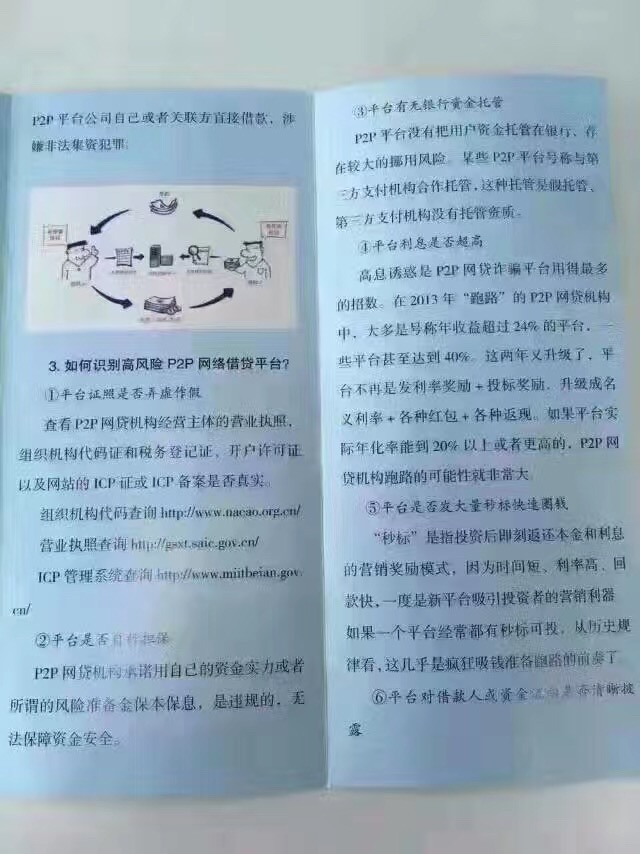 P2P 平台公司自己或者关联方直接借款，涉
嫌非法集资犯罪。
3. 如何识别高风险 P2P 网络借贷平台？
①平台证照是否弄虚作假
查看P2P网贷机构经营主体的营业执照，
组织机构代码证和税务登记证、开户许可证
以及网站的 ICP 证或 ICP 备案是否真实。
组织机构代码查询 http://www.nacao.org.cn/
营业执照查询 http://gsxt.saic.gov.cn/
ICP 管理系统查询 http://www.miitbeian.gov.
cn/
②平台是否自行担保
P2P 网贷机构承诺用自己的资金实力或者
所谓的风险准备金保本保息，是违规的，无
法保障资金安全。
③平台有无银行资金托管
P2P 平台没有把用户资金托管在银行、存
在较大的挪用风险。某些 P2P 平台号称与第
三方支付机构合作托管，这种托管是假托管、
第三方支付机构没有托管资质。
④平台利息是否超高
高息诱惑是 P2P 网贷诈骗平台用得最多
的招数。在 2013 年“跑路”的 P2P 网贷机构
中，大多是号称年收益超过 24% 的平台，一
些平台甚至达到 40%。这两年又升级了，平
台不再是发利率奖励 + 投标奖励，升级成名
义利率 + 各种红包 + 各种返现。如果平台实
际年化率能到 20% 以上或者更高的，P2P 网
贷机构跑路的可能性就非常大
⑤平台是否发大量秒标快速圈钱
“秒标”是指投资后即刻返还本金和利息
的营销奖励模式，因为时间短、利率高、回
款快，一度是新平台吸引投资者的营销利器
如果一个平台经常都有秒标可投，从历史规
律看，这几乎是疯狂吸钱准备跑路的前奏了
⑥平台对借款人或资金 是否清晰披
露